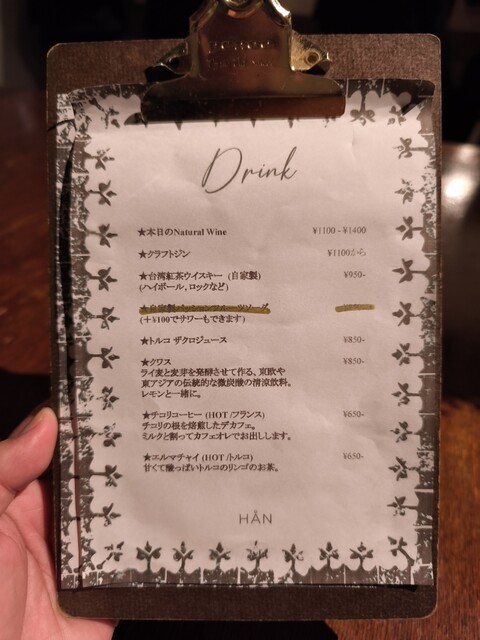 Drink
★本日のNatural Wine ¥1100 - ¥1400
★クラフトジン ¥1100から
★台湾紅茶ウイスキー (自家製) ¥950-
(ハイボール、ロックなど)
★自家製パッションフルーツソーダ
(＋¥100でサワーもできます)
★トルコ ザクロジュース ¥850-
★クワス ¥850-
ライ麦と麦芽を発酵させて作る、東欧や
東アジアの伝統的な微炭酸の清涼飲料。
レモンと一緒に。
★チコリコーヒー (HOT /フランス) ¥650-
チコリの根を焙煎したデカフェ。
ミルクと割ってカフェオレでお出しします。
★エルマチャイ (HOT /トルコ) ¥650-
甘くて酸っぱいトルコのリンゴのお茶。
HÅN